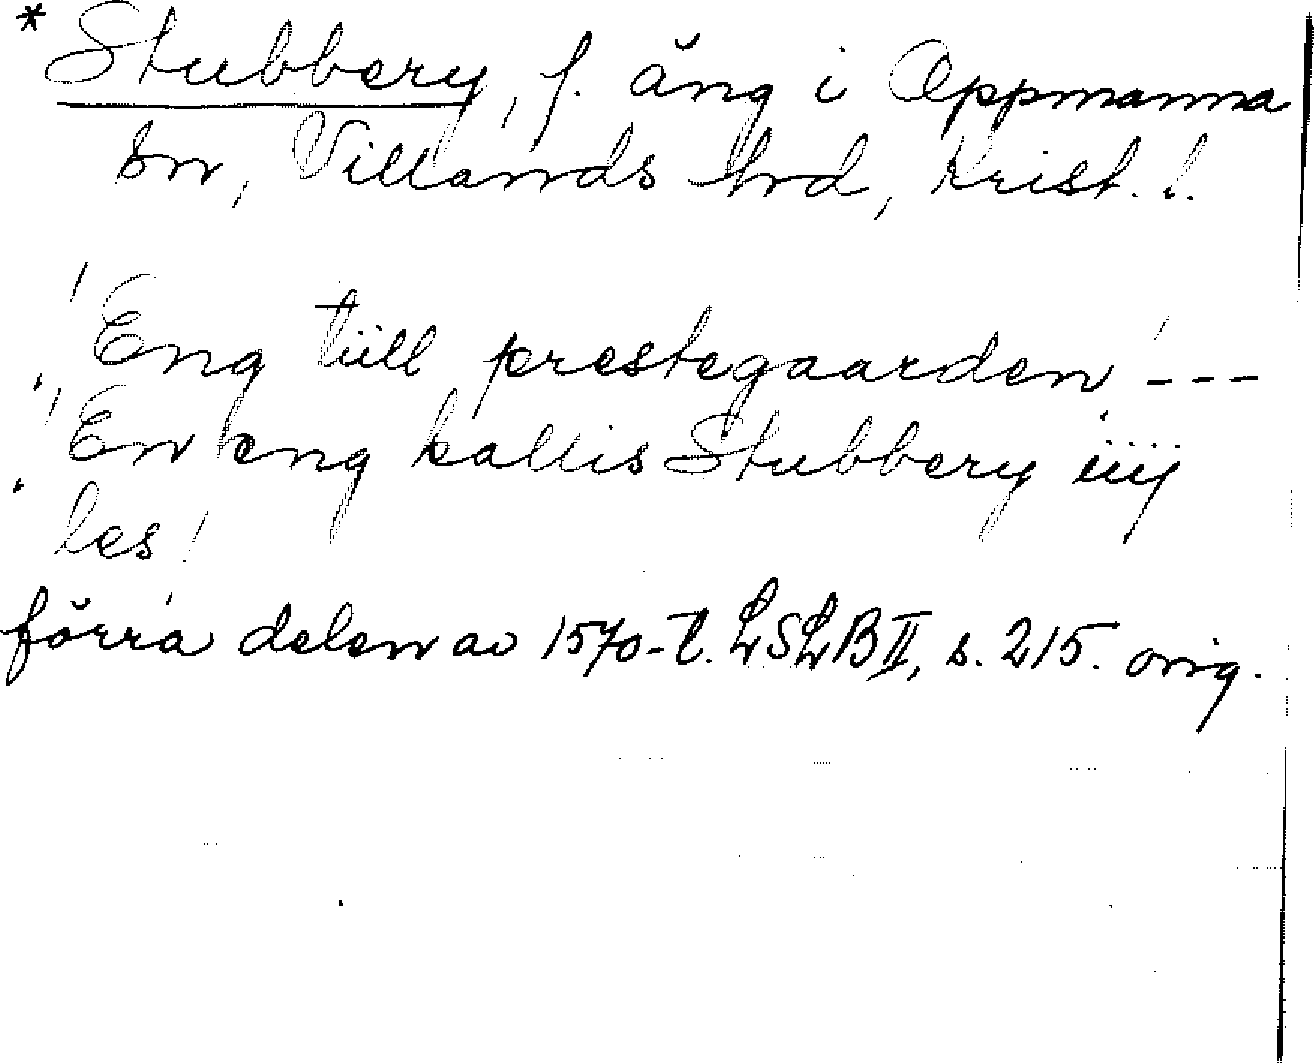 * Stubbery, f. äng i Oppmanna
sn, Villands hrd, Krist. l.
'Eng tiill prestegaarden' ---
'En eng kallis Stubbery iiij
les'
förra delen av 1570-t. LSLB II, s. 215. orig.